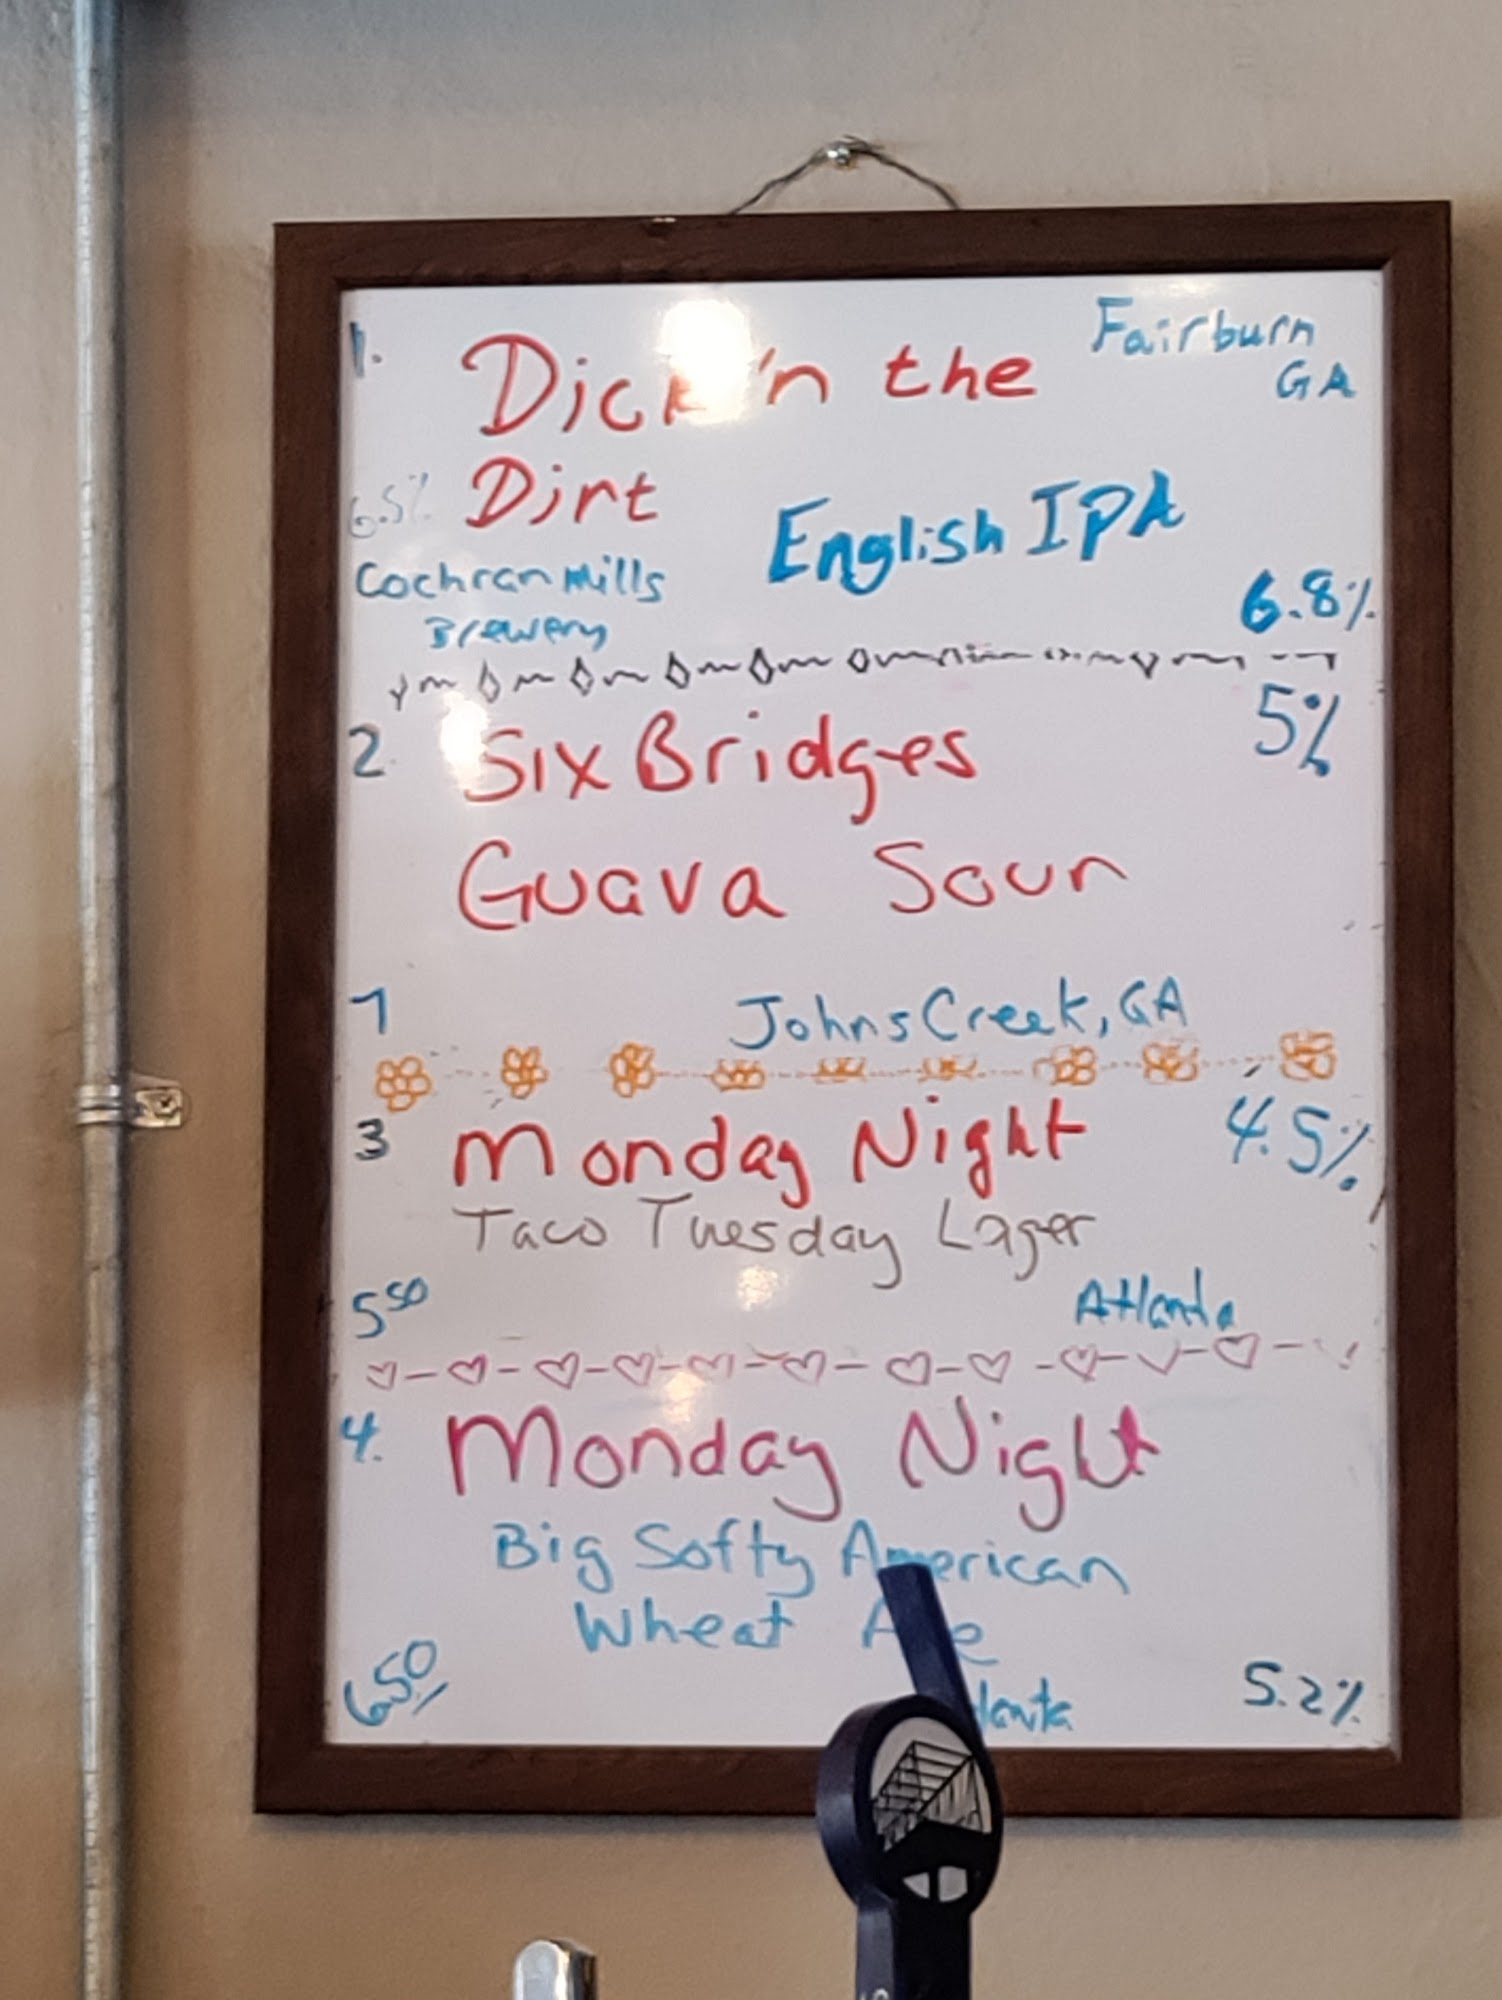 1. Dick 'n the Fairburn
GA
6.5% Dirt
English IPA
Cochran Mills
Brewery
6.8%
2. Six Bridges 5%
Guava Sour
7 Johns Creek, GA
3 Monday Night 4.5%
Taco Tuesday Lager
5 50 Atlanta
4. Monday Night
Big Softy American
Wheat
6 50 5.2%